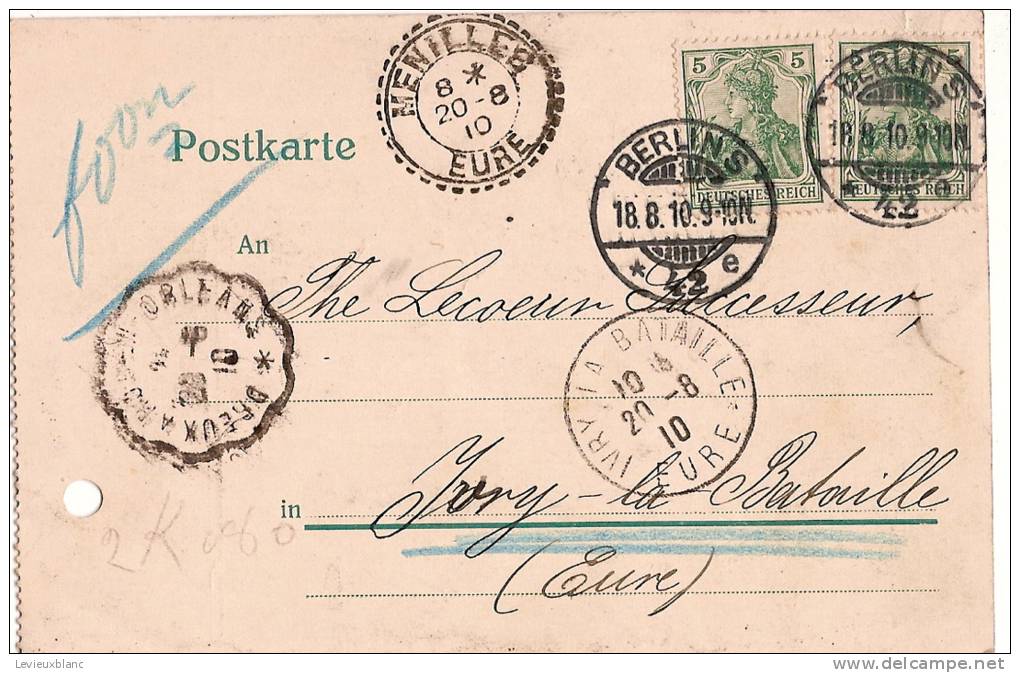 MENILLES
8 *
20-8
10
EURE
5
5
DEUTSCHES REICH
DEUTSCHES REICH
BERLIN S
18.8.10.9-10N.
* 42 e
BERLIN S
18.8.10.9-10N.
* 42
Postkarte
An
The Lecoeur Successeur,
ORLEANS * DREUX A
10
IVRY-LA BATAILLE
10
20-8
10
EURE
in Ivry-la-Bataille
(Eure)
2K 080
Levieuxblanc
www.delcampe.net